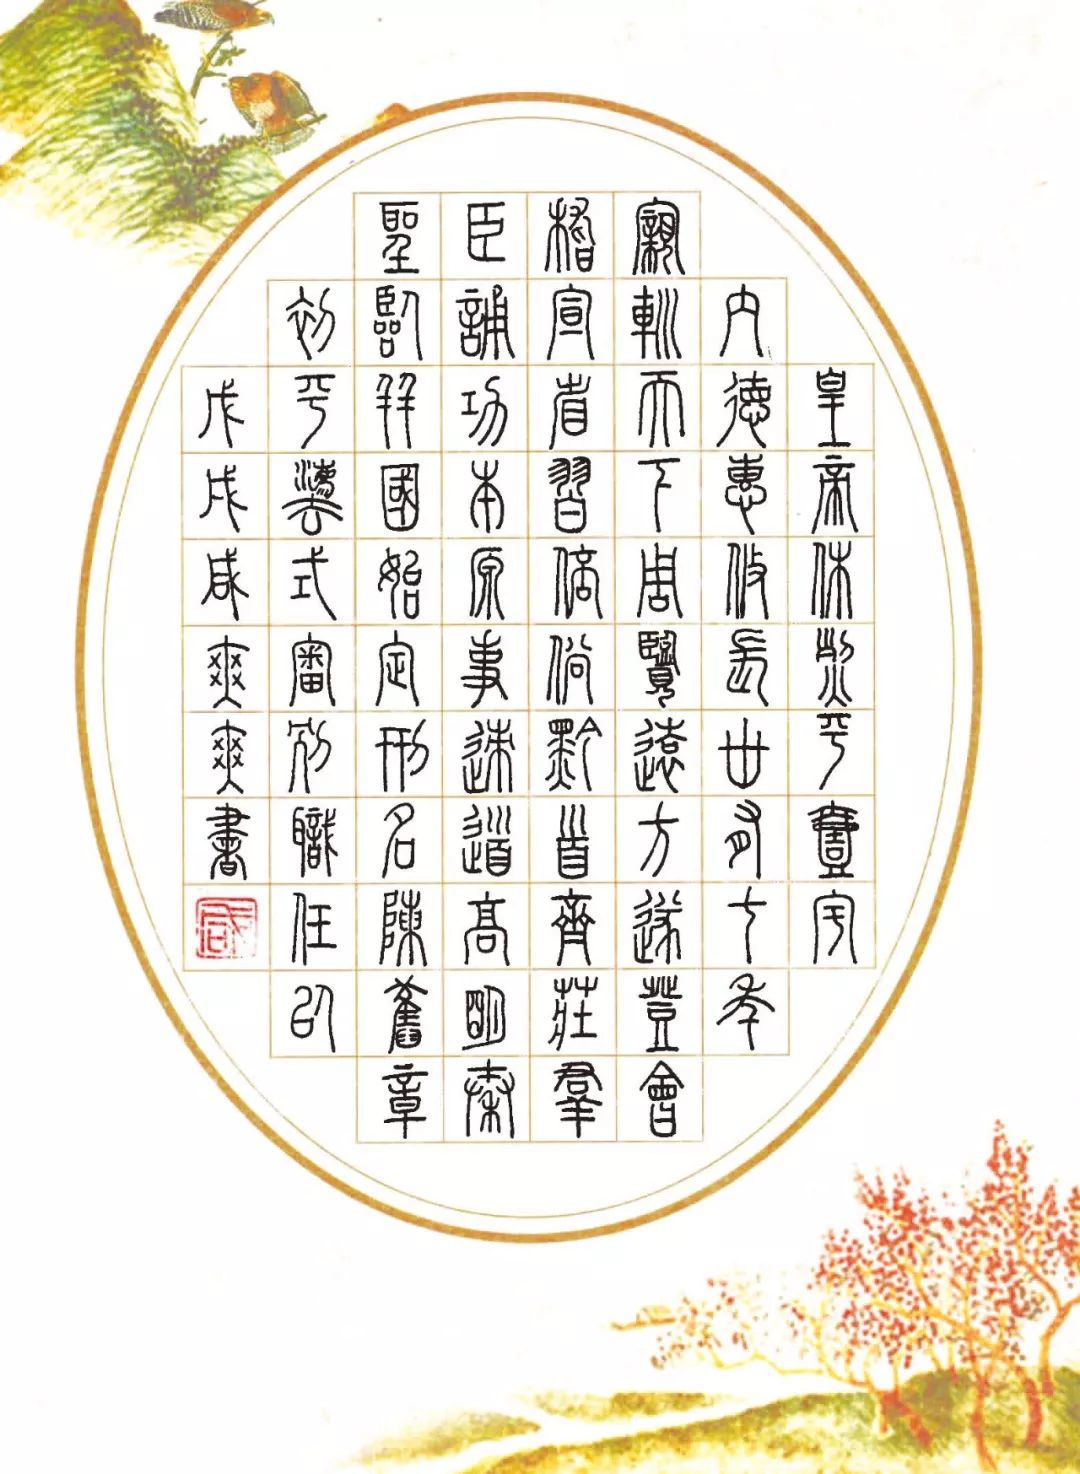 皇帝休烈平壹宇
內德惠攸長丗有七年
親巡天下周覽遠方遂登會
稽宣省習俗黔首齊莊羣
臣誦功本原事迹道高明秦
聖臨并國始定刑名陳舊章
初平灋式審別職任以
戊戌咸爽爽書